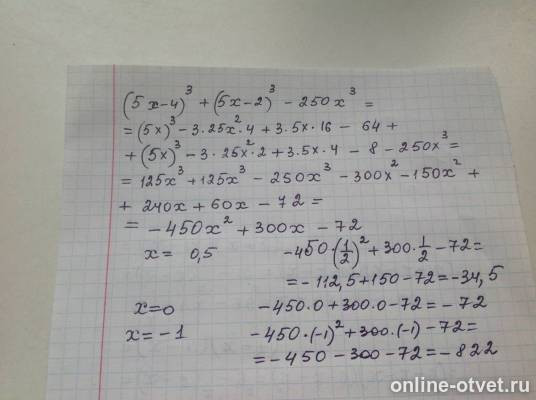 (5x-4)³ + (5x-2)³ - 250x³ =
= (5x)³ - 3·25x²·4 + 3·5x·16 - 64 +
+ (5x)³ - 3·25x²·2 + 3·5x·4 - 8 - 250x³ =
= 125x³ + 125x³ - 250x³ - 300x² - 150x² +
+ 240x + 60x - 72 =
= -450x² + 300x - 72
x = 0,5 -450·(1/2)² + 300·1/2 - 72 =
= -112,5 + 150 - 72 = -34,5
x = 0 -450·0 + 300·0 - 72 = -72
x = -1 -450·(-1)² + 300·(-1) - 72 =
= -450 - 300 - 72 = -822
online-otvet.ru